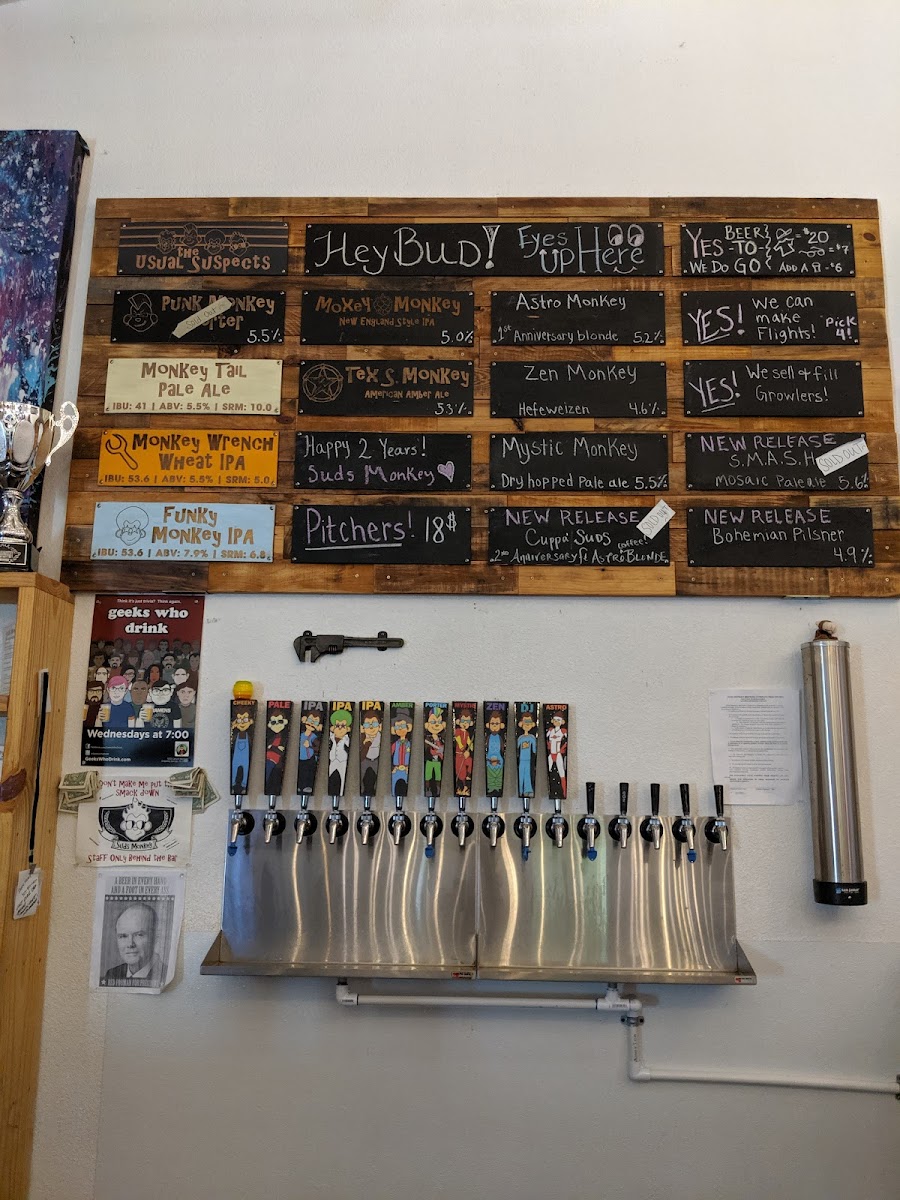 the
Usual Suspects
Hey Bud!
Eyes
Up Here
BEER
YES-TO-
WE DO GO
= $20
= $7
ADD A
$6
Punk Monkey
Porter
Sold Out
5.5%
Moxey Monkey
New England Style IPA
5.0%
Astro Monkey
1st Anniversary blonde 5.2%
YES!
We can
make
Flights!
Pick
4!
Monkey Tail
Pale Ale
IBU: 41 | ABV: 5.5% | SRM: 10.0
Tex S. Monkey
American Amber Ale
5.3%
Zen Monkey
Hefeweizen 4.6%
YES!
We sell & fill
Growlers!
Monkey Wrench
Wheat IPA
IBU: 53.6 | ABV: 5.5% | SRM: 5.0
Happy 2 Years!
Suds Monkey
Mystic Monkey
Dry hopped Pale ale 5.5%
NEW RELEASE
S.M.A.S.H
Mosaic Pale ale 5.6%
SOLD OUT
Funky
Monkey IPA
IBU: 53.6 | ABV: 7.9% | SRM: 6.8
Pitchers! 18$
NEW RELEASE
Cuppa' Suds
coffee!
2nd Anniversary ft ASTRO BLONDE
SOLD OUT
NEW RELEASE
Bohemian Pilsner
4.9%
Think it's just trivia? Think again.
geeks who
drink
Wednesdays at 7:00
GeeksWhoDrink.com
CHEEKY
PALE
IPA
IPA
IPA
AMBER
PORTER
MYSTIC
ZEN
DJ
ASTRO
Don't Make Me Put the
Smack Down
Suds Monkey
Staff Only Behind the Bar
A BEER IN EVERY HAND
AND A FOOT IN EVERY